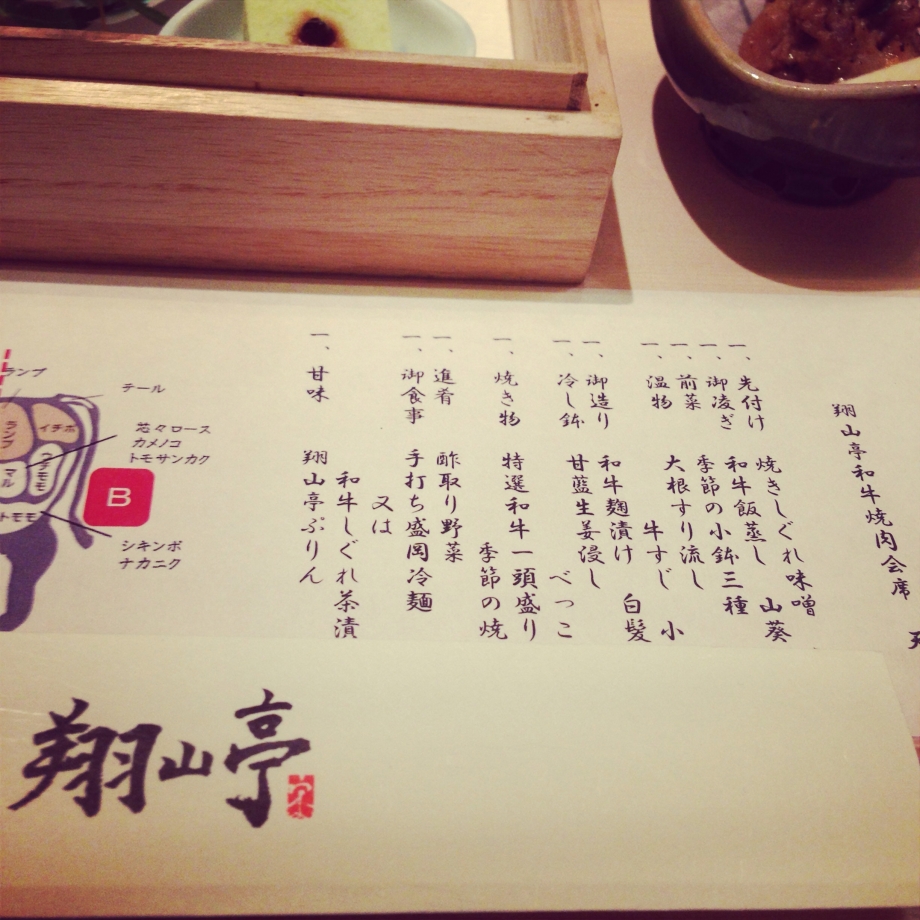 翔山亭和牛焼肉会席
一、先付け　焼きしぐれ味噌　山葵
一、御凌ぎ　和牛飯蒸し
一、前菜　季節の小鉢三種
一、温物　大根すり流し　小
牛すじ　白髪
一、御造り　和牛麹漬け
一、冷し鉢　甘藍生姜浸し　べっこ
一、焼き物　特選和牛一頭盛り
季節の焼
一、進肴　酢取り野菜
一、御食事　手打ち盛岡冷麺
又は
和牛しぐれ茶漬
一、甘味　翔山亭ぷりん
ランプ
テール
芯々ロース
カメノコ
トモサンカク
ランプ
イチボ
ウチモモ
マル
トモモ
B
シキンボ
ナカニク
翔山亭